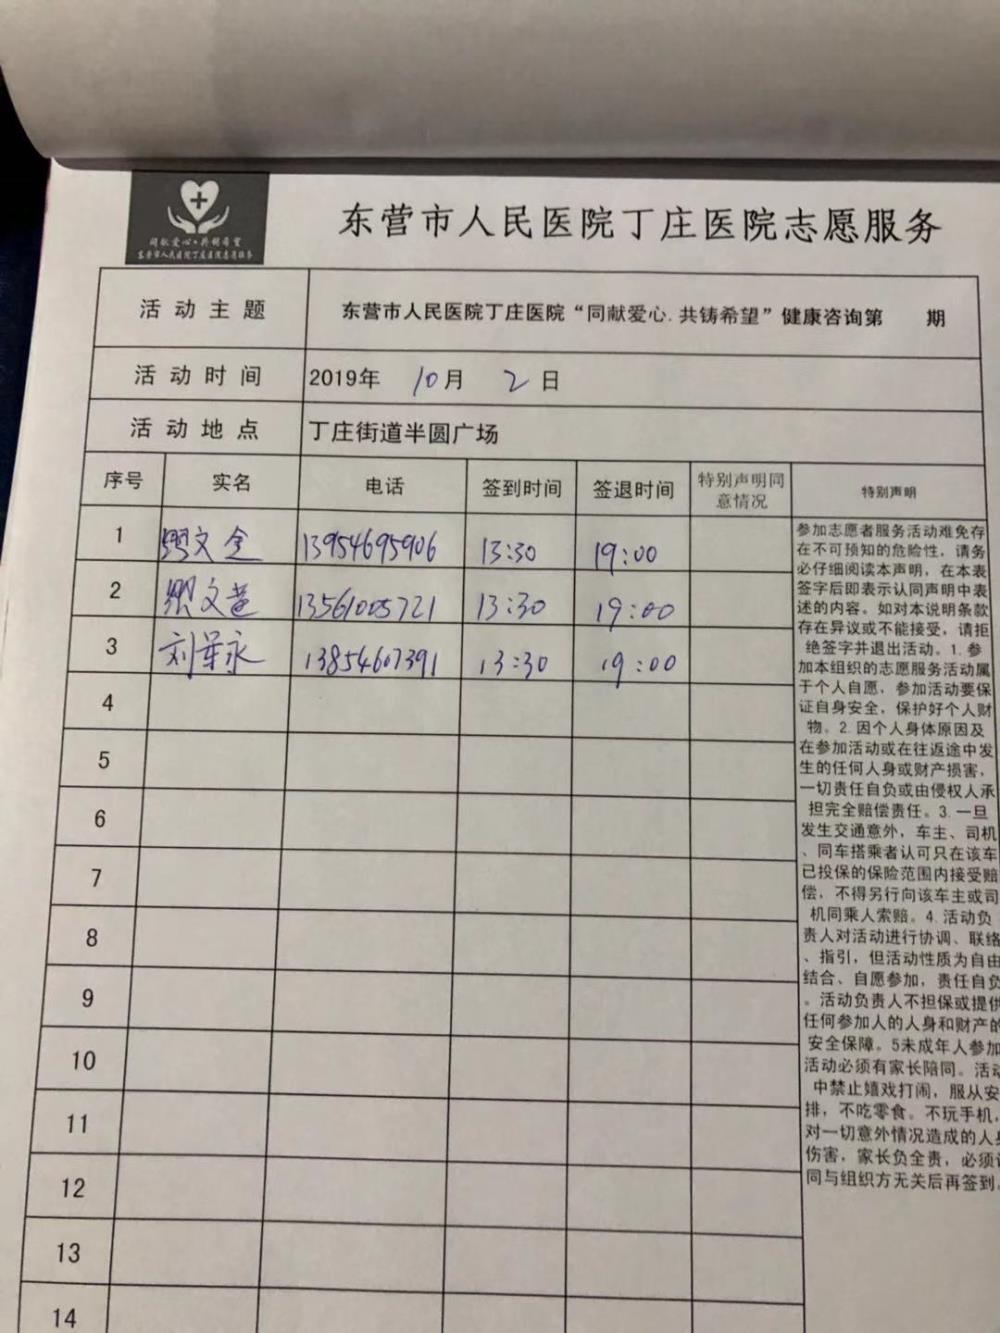 同献爱心·共铸希望
东营市人民医院丁庄医院志愿服务
东营市人民医院丁庄医院志愿服务
活动主题 东营市人民医院丁庄医院“同献爱心.共铸希望”健康咨询第 期
活动时间 2019年 10月 2日
活动地点 丁庄街道半圆广场
序号 实名 电话 签到时间 签退时间 特别声明同意情况 特别声明
1 文全 13954695906 13:30 19:00
2 文 13561005721 13:30 19:00
3 刘军永 13854607391 13:30 19:00
4
5
6
7
8
9
10
11
12
13
14
参加志愿者服务活动难免存
在不可预知的危险性，请务
必仔细阅读本声明，在本表
签字后即表示认同声明中表
述的内容。如对本说明条款
存在异议或不能接受，请拒
绝签字并退出活动。1.参
加本组织的志愿服务活动属
于个人自愿，参加活动要保
证自身安全，保护好个人财
物。2.因个人身体原因及
在参加活动或在往返途中发
生的任何人身或财产损害，
一切责任自负或由侵权人承
担完全赔偿责任。3.一旦
发生交通意外，车主、司机
、同车搭乘者认可只在该车
已投保的保险范围内接受赔
偿，不得另行向该车主或司
机同乘人索赔。4.活动负
责人对活动进行协调、联络
、指引，但活动性质为自由
结合、自愿参加，责任自负
。活动负责人不担保或提供
任何参加人的人身和财产的
安全保障。5未成年人参加
活动必须有家长陪同。活动
中禁止嬉戏打闹，服从安
排，不吃零食。不玩手机，
对一切意外情况造成的人身
伤害，家长负全责，必须
同与组织方无关后再签到。